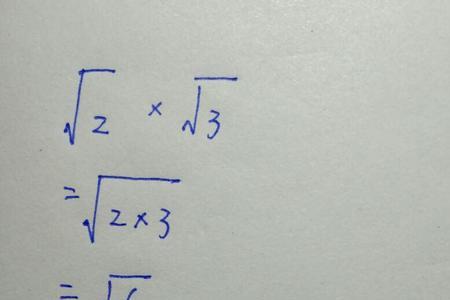 √2 × √3
= √2×3
=